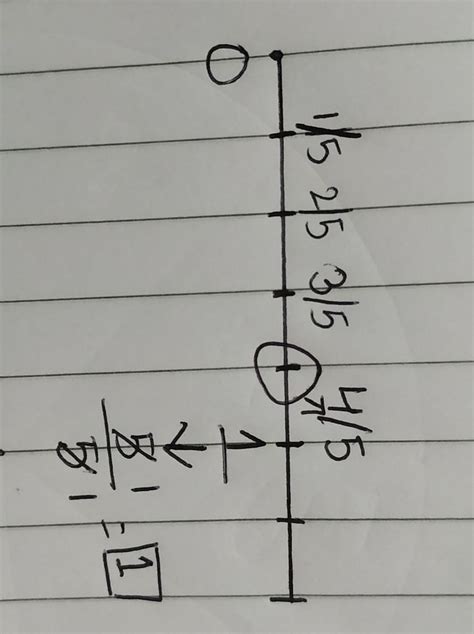 1/5 2/5 3/5 4/5
0
1
5 1
5 1
= 1